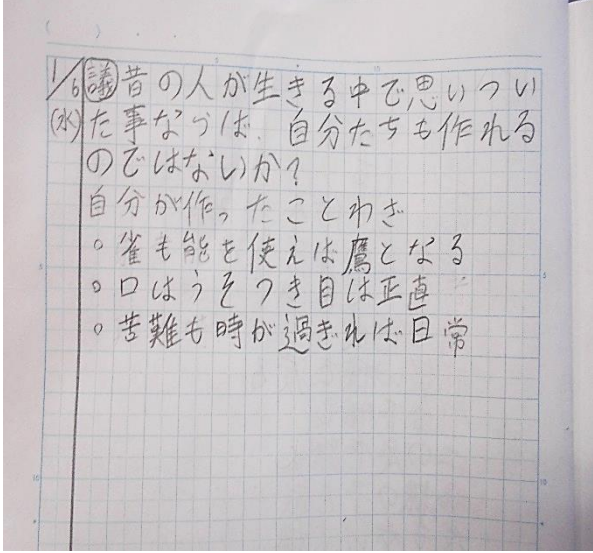 1/6 議 昔の人が生きる中で思いつい
(水) た事ならば、自分たちも作れる
のではないか?
自分が作ったことわざ
○ 雀も能を使えば鷹となる
○ 口はうそつき目は正直
○ 苦難も時が過ぎれば日常